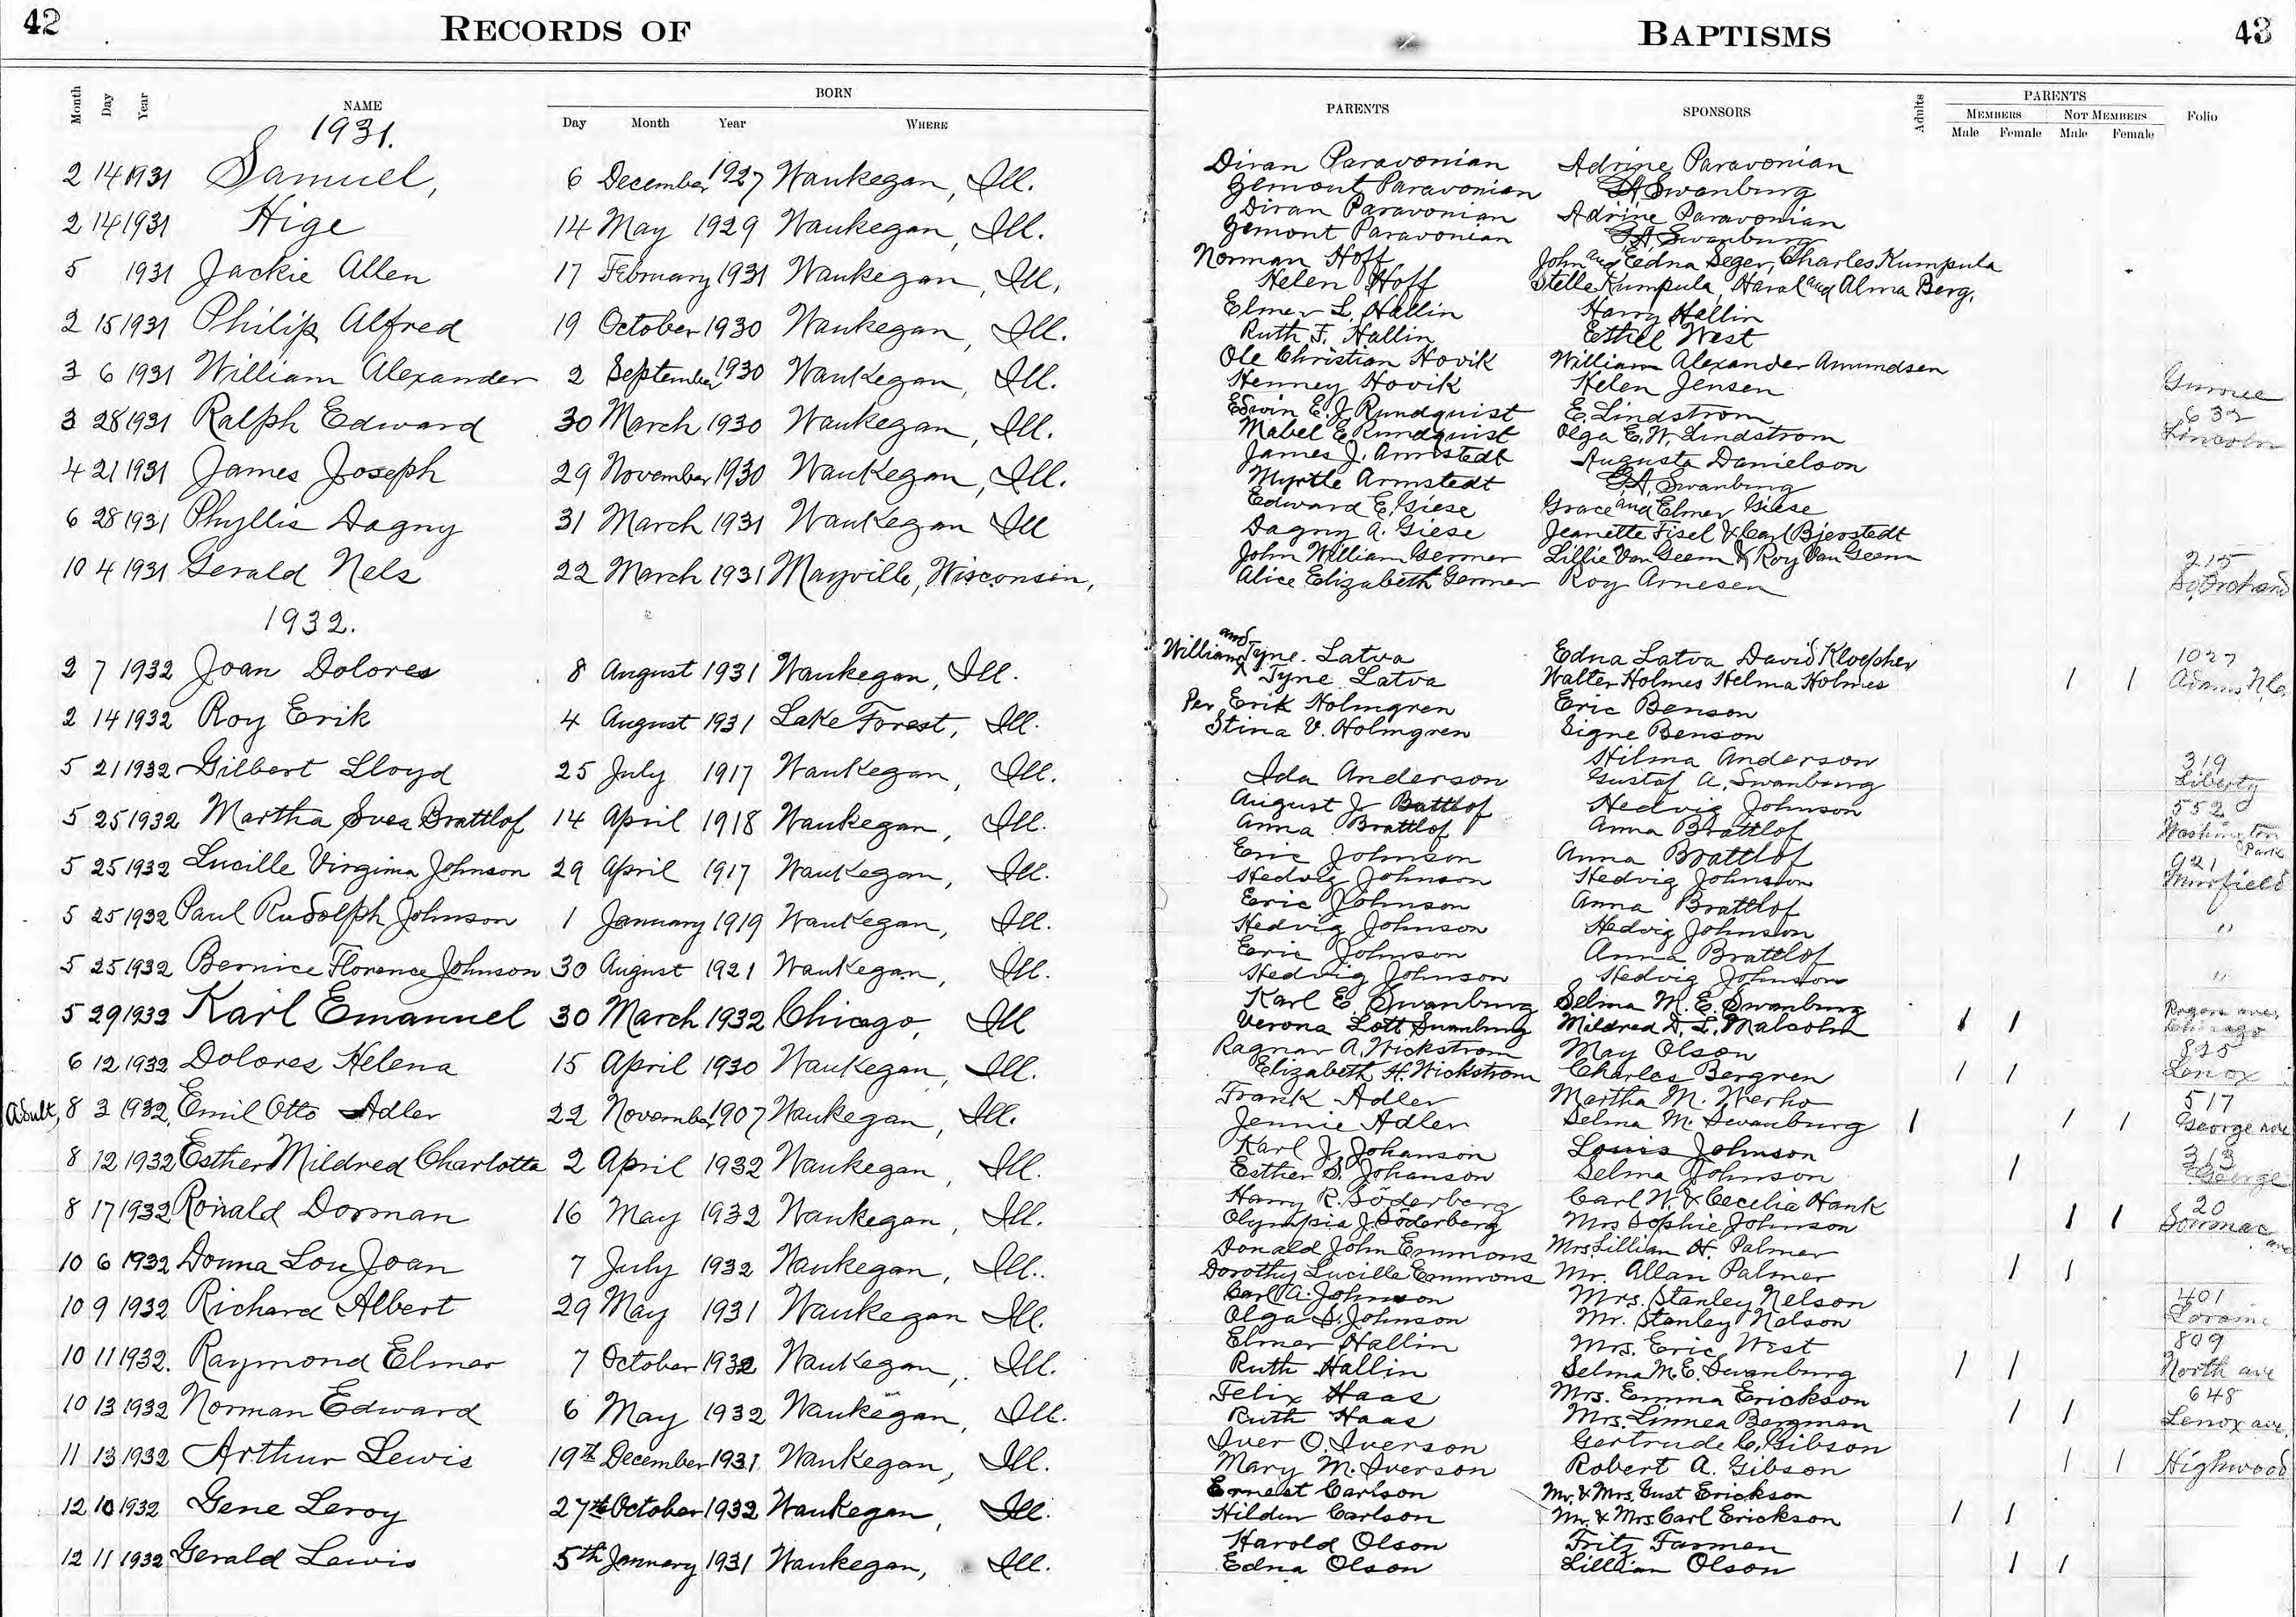 42
RECORDS OF
BAPTISMS
43
Month Day Year
NAME
BORN
Day Month Year WHERE
PARENTS
SPONSORS
Adults
PARENTS
MEMBERS NOT MEMBERS
Male Female Male Female
Folio
1931.
2 14 1931 Samuel, 6 December 1927 Waukegan, Ill.
Diran Paravonian Adrine Paravonian
Gemont Paravonian G.A. Swanburg
2 14 1931 Hige 14 May 1929 Waukegan, Ill.
Diran Paravonian Adrine Paravonian
Gemont Paravonian G.A. Swanburg
5 1931 Jackie Allen 17 February 1931 Waukegan, Ill.
Norman Hoff John and Eedna Seger, Charles Kumpula
Helen Hoff Stelle Kumpula, Haral and Alma Berg.
2 15 1931 Philip Alfred 19 October 1930 Waukegan, Ill.
Elmer L. Hallin Harry Hallin
Ruth F. Hallin Esthel West
3 6 1931 William Alexander 2 September 1930 Waukegan, Ill.
Ole Christian Hovik William Alexander Amundsen
Henney Hovik Helen Jensen Gurnee
3 28 1931 Ralph Edward 30 March 1930 Waukegan, Ill.
Edwin E. J. Rundquist E. Lindstrom 632
Mabel E. Rundquist Olga E. W. Lindstrom Lincoln
4 21 1931 James Joseph 29 November 1930 Waukegan, Ill.
James J. Armstedt Augusta Danielson
Myrtle Armstedt G.A. Swanburg
6 28 1931 Phyllis Dagny 31 March 1931 Waukegan Ill
Edward E. Giese Grace and Elmer Giese
Dagny A. Giese Jeanette Fisel & Carl Bjerstedt
10 4 1931 Gerald Nels 22 March 1931 Mayville, Wisconsin,
John William Germer Lillie Van Geem & Roy Van Geem 215
Alice Elizabeth Germer Roy Arnesen So. Orchard
1932.
2 7 1932 Joan Dolores 8 August 1931 Waukegan, Ill.
William and Tyne. Latva Edna Latva David Kloepher 1027
Tyne Latva Walter Holmes Helma Holmes 1 1 Adams N.C.
2 14 1932 Roy Erik 4 August 1931 Lake Forest, Ill.
Per Erik Holmgren Eric Benson
Stina V. Holmgren Signe Benson
5 21 1932 Gilbert Lloyd 25 July 1917 Waukegan, Ill.
Hilma Anderson 319
Ida Anderson Gustof A. Swanburg Liberty
5 25 1932 Martha Svea Brattlof 14 April 1918 Waukegan, Ill.
August J Battlof Hedvig Johnson 552
Anna Brattlof Anna Brattlof Washington Park
5 25 1932 Lucille Virginia Johnson 29 April 1917 Waukegan, Ill.
Eric Johnson Anna Brattlof 921
Hedvig Johnson Hedvig Johnson Muirfield
5 25 1932 Paul Rudolph Johnson 1 January 1919 Waukegan, Ill.
Eric Johnson Anna Brattlof
Hedvig Johnson Hedvig Johnson "
5 25 1932 Bernice Florence Johnson 30 August 1921 Waukegan, Ill.
Eric Johnson Anna Brattlof
Hedvig Johnson Hedvig Johnson "
5 29 1932 Karl Emanuel 30 March 1932 Chicago, Ill
Karl E. Swanburg Selma M. E. Swanburg
Verona Lott Swanburg Mildred D. L. Malcolm 1 1 Chicago
6 12 1932 Dolores Helena 15 April 1930 Waukegan, Ill.
Ragnar A. Wickstrom May Olson 825
Elizabeth H. Wickstrom Charles Bergren 1 1 Lenox
Adult, 8 3 1932 Emil Otto Adler 22 November 1907 Waukegan, Ill.
Frank Adler Martha M. Werho 517
Jennie Adler Selma M. Swanburg 1 1 1 George ave
8 12 1932 Esther Mildred Charlotta 2 April 1932 Waukegan, Ill.
Karl J. Johanson Louis Johnson 313
Esther S. Johanson Selma Johnson 1 George
8 17 1932 Ronald Dorman 16 May 1932 Waukegan, Ill.
Harry R. Söderberg Carl W. & Cecelia Hank 20
Olympia J. Söderberg Mrs Sophie Johnson 1 1 ave
10 6 1932 Donna Lou Joan 7 July 1932 Waukegan, Ill.
Donald John Emmons Mrs. Lillian H. Palmer
Dorothy Lucille Emmons Mr. Allan Palmer 1 1
10 9 1932 Richard Albert 29 May 1931 Waukegan Ill.
Carl A. Johnson Mrs. Stanley Nelson 401
Olga S. Johnson Mr. Stanley Nelson Loraine
10 11 1932. Raymond Elmer 7 October 1932 Waukegan, Ill.
Elmer Hallin Mrs. Eric West 809
Ruth Hallin Selma M. E. Swanburg 1 1 North ave
10 13 1932 Norman Edward 6 May 1932 Waukegan, Ill.
Felix Haas Mrs. Emma Erickson 648
Ruth Haas Mrs. Linnea Bergman 1 1 Lenox ave.
11 13 1932 Arthur Lewis 19th December 1931 Waukegan, Ill.
Iver O. Iverson Gertrude C. Gibson
Mary M. Iverson Robert A. Gibson 1 1 Highwood
12 10 1932 Gene Leroy 27th October 1932 Waukegan, Ill.
Ernest Carlson Mr. & Mrs. Gust Erickson
Hildur Carlson Mr. & Mrs Carl Erickson 1 1
12 11 1932 Gerald Lewis 5th January 1931 Waukegan, Ill.
Harold Olson Fritz Farmen
Edna Olson Lillian Olson 1 1